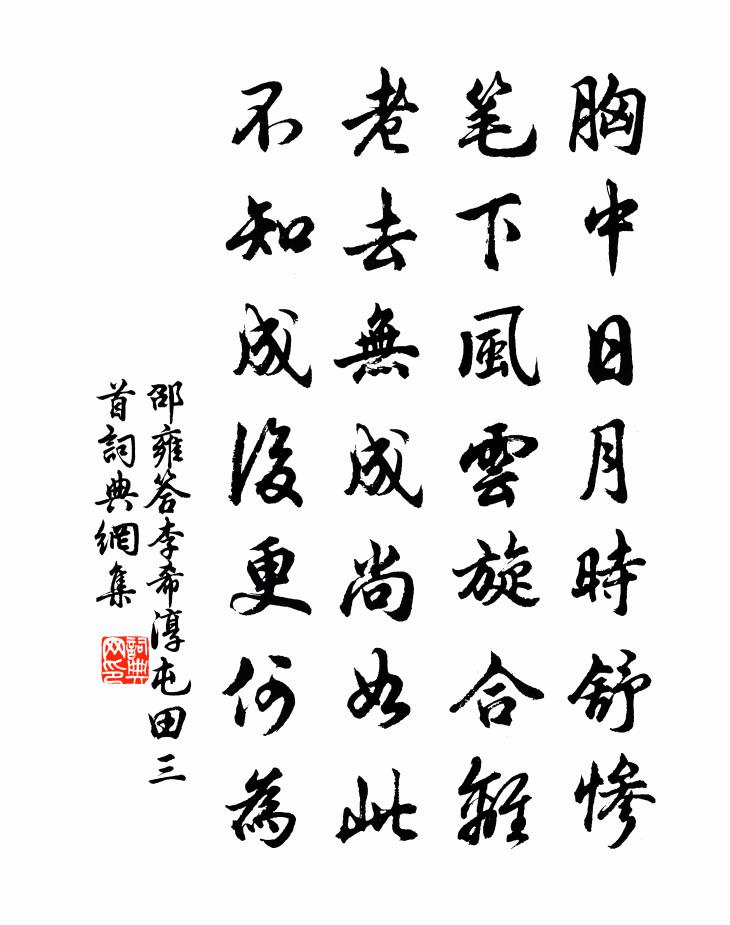 胸中日月時舒慘
笔下風雲旋合離
老去無成尚如此
不知成後更何為
邵雍答李希淳屯田三
首詞典網集
詞典
网印